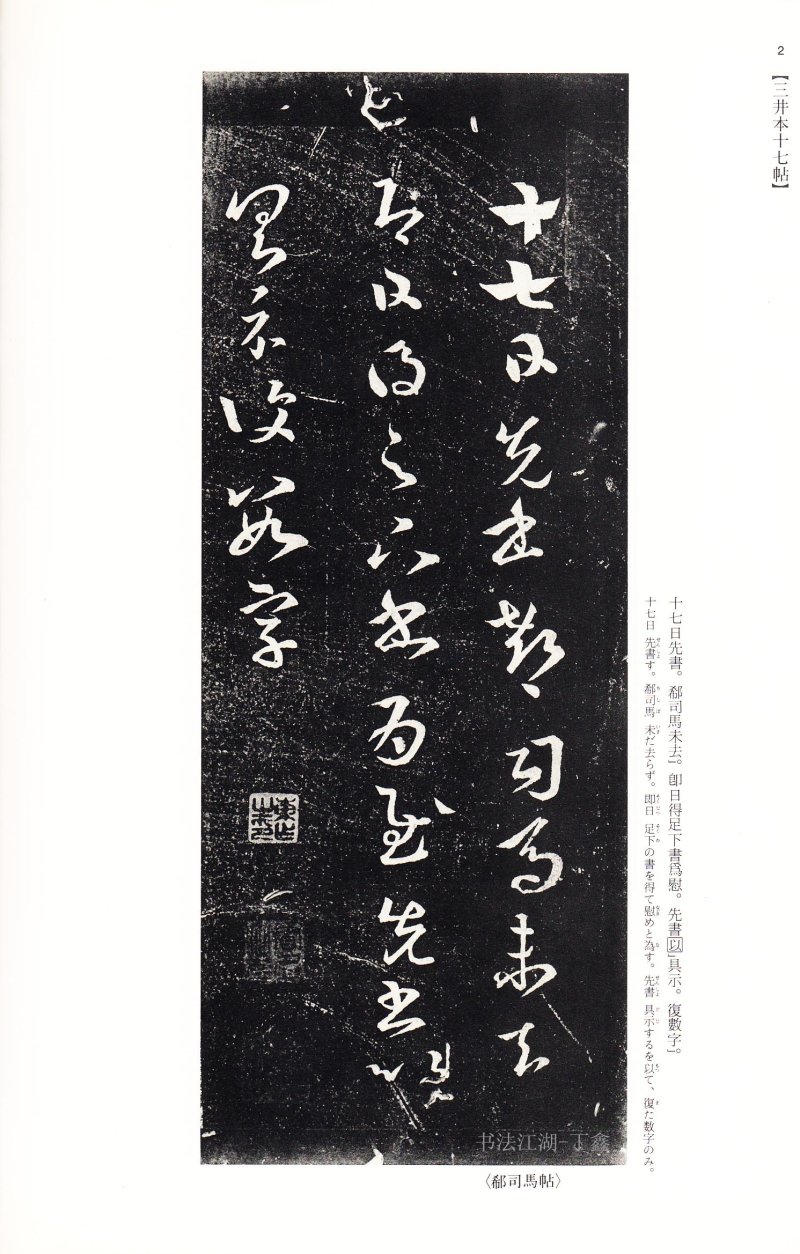 2
【三井本十七帖】
十七日先書。郗司馬未去」。即日得足下書爲慰。先書以」具示。復數字」。
十七日 先書す。郗司馬 未だ去らず。即日 足下の書を得て慰めと為す。先書 具示するを以て、復た数字のみ。
十七日先書郗司馬未去
即日得足下書為慰先書以
具示復數字
書法江湖-丁鑫
〈郗司馬帖〉